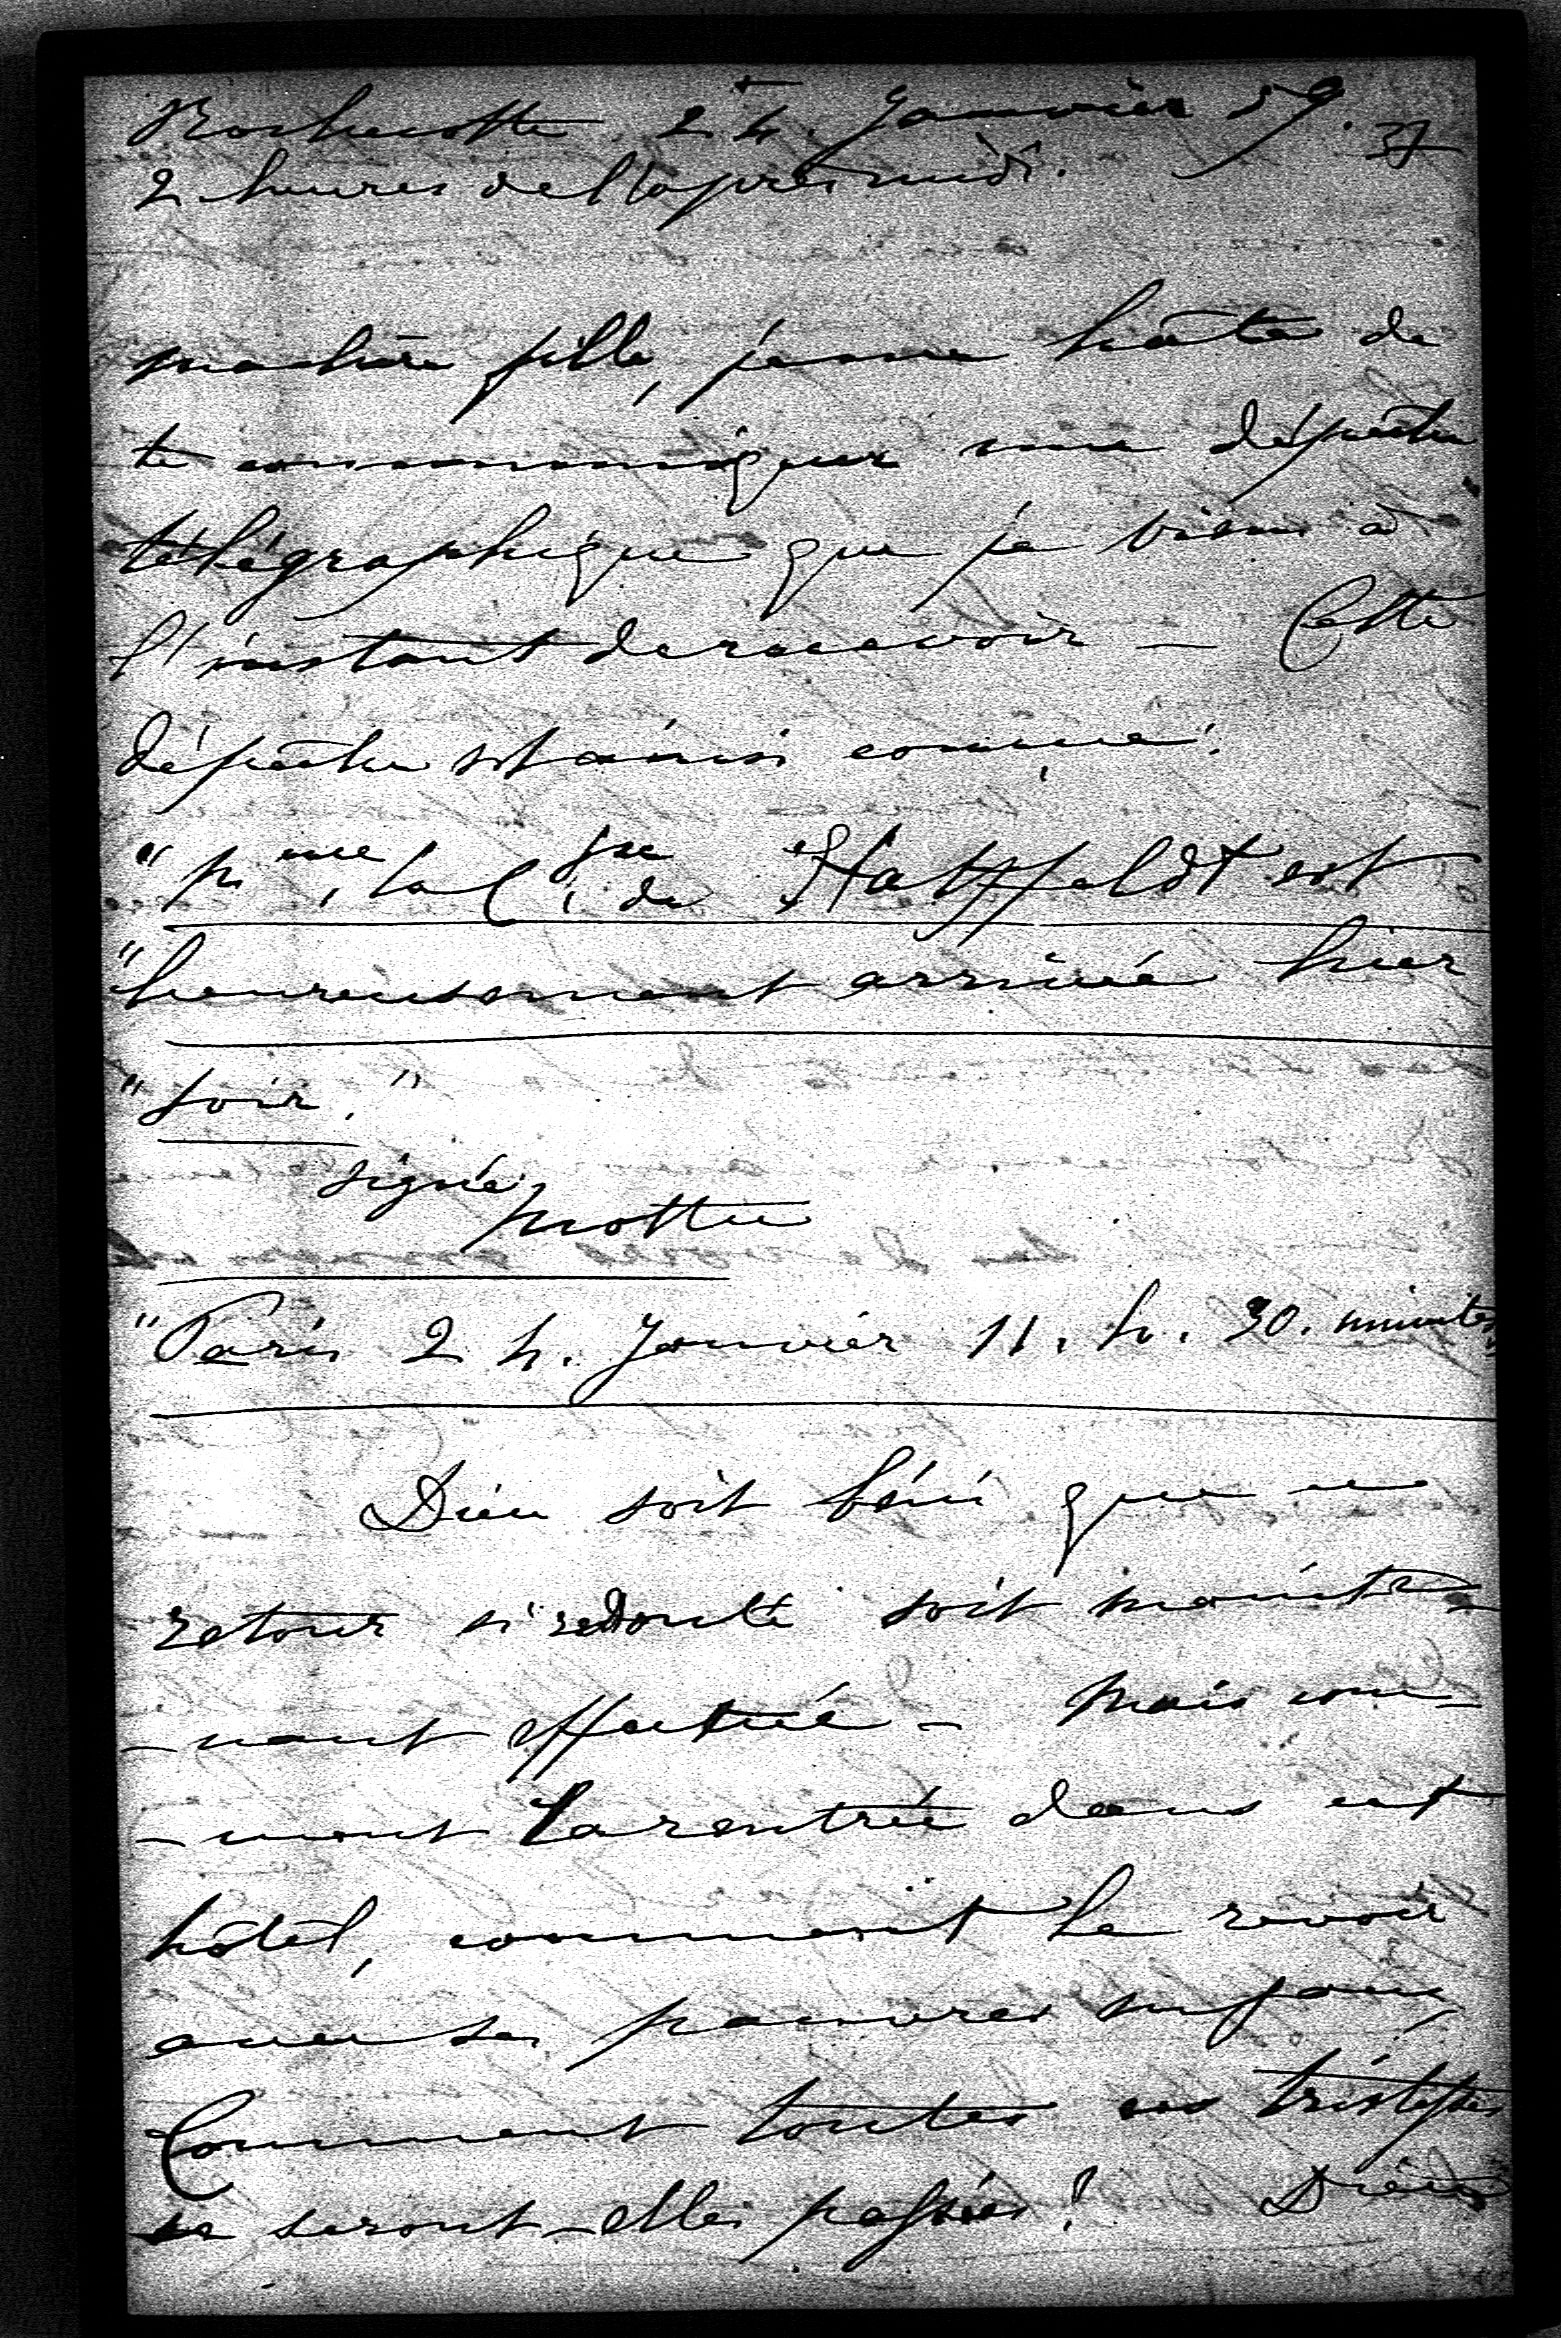 Rochecotte 24. Janvier 59.
37
2 heures de l'après midi.
ma chère fille, je me hâte de
te communiquer une dépêche
télégraphique que je viens à
l'instant de recevoir — Cette
dépêche est ainsi conçue:
"Mme la Csse de Hatzfeldt est
"heureusement arrivée hier
"soir."
signé
Mottu
"Paris 24. Janvier 11. h. 30. minutes"
Dieu soit béni que ce
retour si redouté soit mainte-
-nant effectué — Mais com-
-ment la rentrée dans cet
hôtel, comment le revoir
avec ses pauvres enfans,
Comment toutes ces tristesses
se seront-elles passées? Dieu